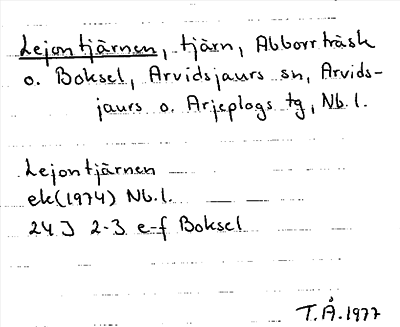 Lejontjärnen, tjärn, Abborrträsk
o. Boksel, Arvidsjaurs sn, Arvids-
jaurs o. Arjeplogs tg, Nb.l.
Lejontjärnen
ek(1974) Nb.l.
24J 2-3 e-f Boksel
T.Å.1977